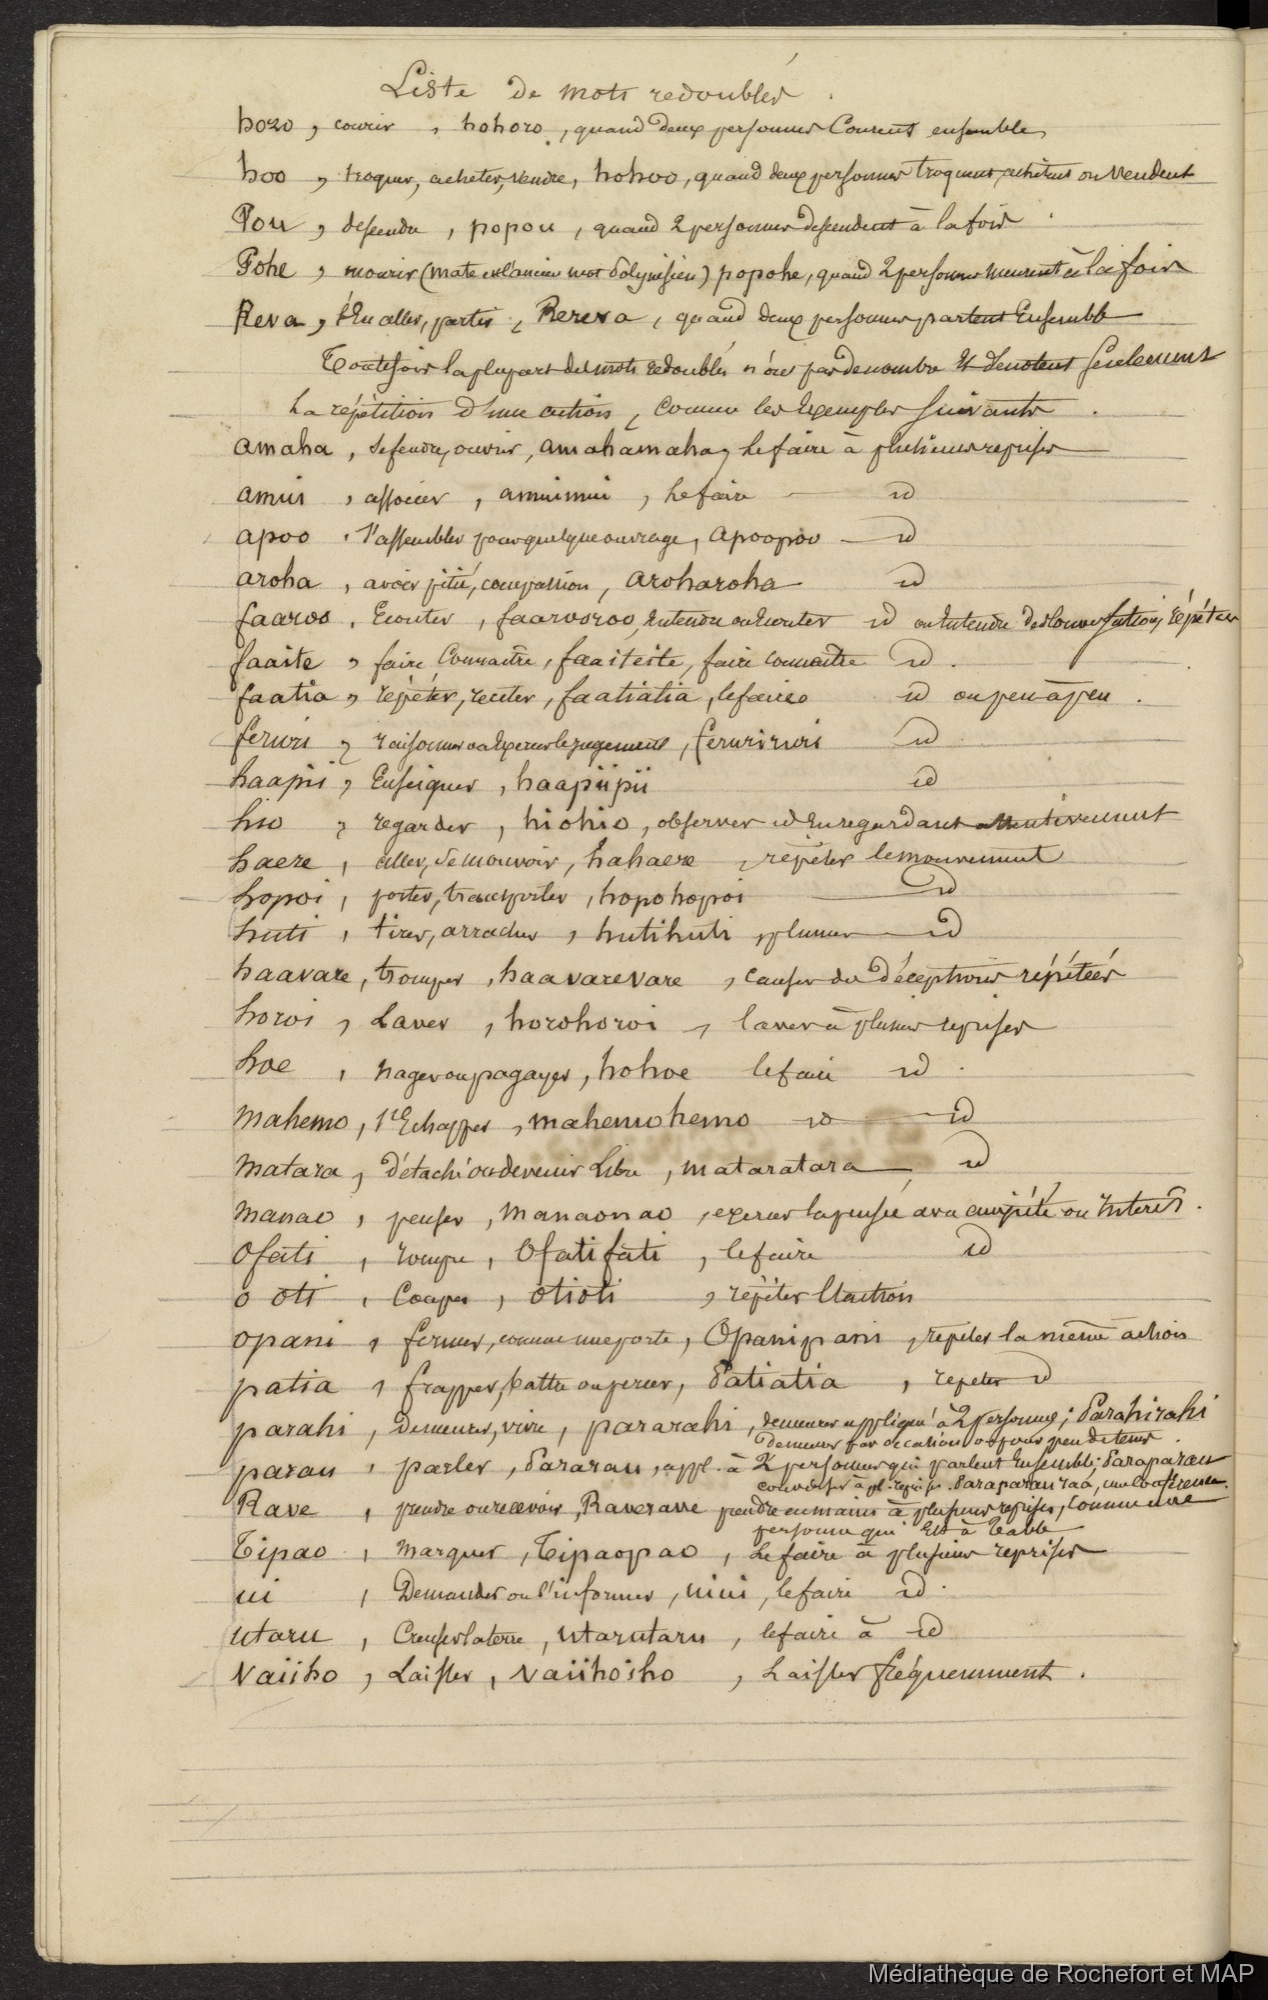 Liste de mots redoublés.
horo, courir, hohoro, quand deux personnes courent ensemble
hoo, troquer, acheter, vendre, hohoo, quand deux personnes troquent, achètent ou vendent
Pou, descendre, popou, quand 2 personnes descendent à la fois.
Pohe, mourir (mate est l'ancien mot Polynésien) popohe, quand 2 personnes meurent à la fois
Reva, s'En aller, partir, Rereva, quand deux personnes partent Ensemble
Toutefois la plupart des mots redoublés n'ont pas de nombre Et dénotent seulement
La répétition d'une action, comme les Exemples suivants.
amaha, se fendre, ouvrir, amahamaha, le faire à plusieurs reprises
amui, associer, amuimui, le faire id
apoo, s'assembler pour quelque ouvrage, apoopoo id
aroha, avoir pitié, compassion, aroharoha id
faaroo, Ecouter, faarooroo, Entendre ou Ecouter id ou Entendre des Conversations répétées
faaite, faire Connaître, faaiteite, faire connaître id.
faatia, répéter, reciter, faatiatia, le faire id ou peu à peu.
feruri, raisonner ou Exercer le jugement, feruriruri id
haapii, Enseigner, haapiipii id
hio, regarder, hiohio, observer id En regardant attentivement
haere, aller, se mouvoir, hahaere, répéter le mouvement
hopoi, porter, transporter, hopohopoi id
huti, tirer, arracher, hutihuti, plumer id
haavare, tromper, haavarevare, causer des déceptions répétées
horoi, Laver, horohoroi, laver à plusieurs reprises
hoe, nager ou pagayer, hohoe le faire id.
mahemo, s'Echapper, mahemohemo id id
matara, détaché ou devenir libre, mataratara id
manao, penser, manaonao, exercer la pensée avec anxiété ou Intérêt.
Ofati, rompre, Ofatifati, le faire id
o oti, Couper, otioti, répéter l'action
opani, fermer, comme une porte, Opanipani, répéter la même action
patia, frapper, battre ou percer, Patiatia, répéter id
parahi, Demeurer, vivre, pararahi, demeurer appliqué à 2 personnes; Parahirahi
Demeurer par occasion ou pour peu de tems.
parau, parler, Pararau, appl. à 2 personnes qui parlent Ensemble; Paraparau
converser à pl. reprises. Paraparau raa, une Conférence.
Rave, prendre ou recevoir, Raverave prendre en mains à plusieurs reprises, comme une
personne qui Est à Table
Tipao, marquer, Tipaopao, Le faire à plusieurs reprises
ui, Demander ou s'informer, uiui, le faire id.
utaru, Creuser la terre, utarutaru, le faire à id
Vaiiho, Laisser, Vaiihoiho, Laisser fréquemment.
Médiathèque de Rochefort et MAP